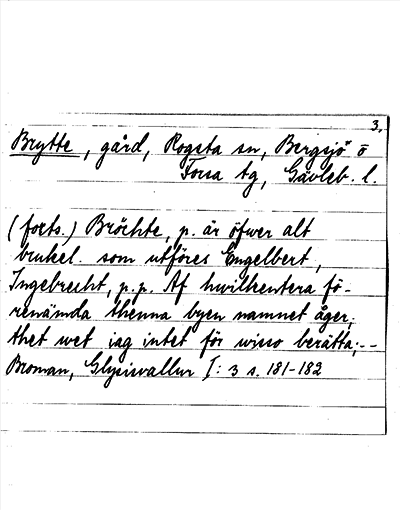 3.
Brytte, gård, Rogsta sn, Bergsjö o
Forsa tg, Gävleb. l.
(forts.) Bröchte, p. är öfwer alt
brukel. som utföres Engelbert,
Ingebrecht, p.p. Af hwilkentera fö-
renämda thenna byen namnet äger,
thet wet iag intet för wisso berätta;--
Broman, Glysisvallur I: 3 s. 181-182